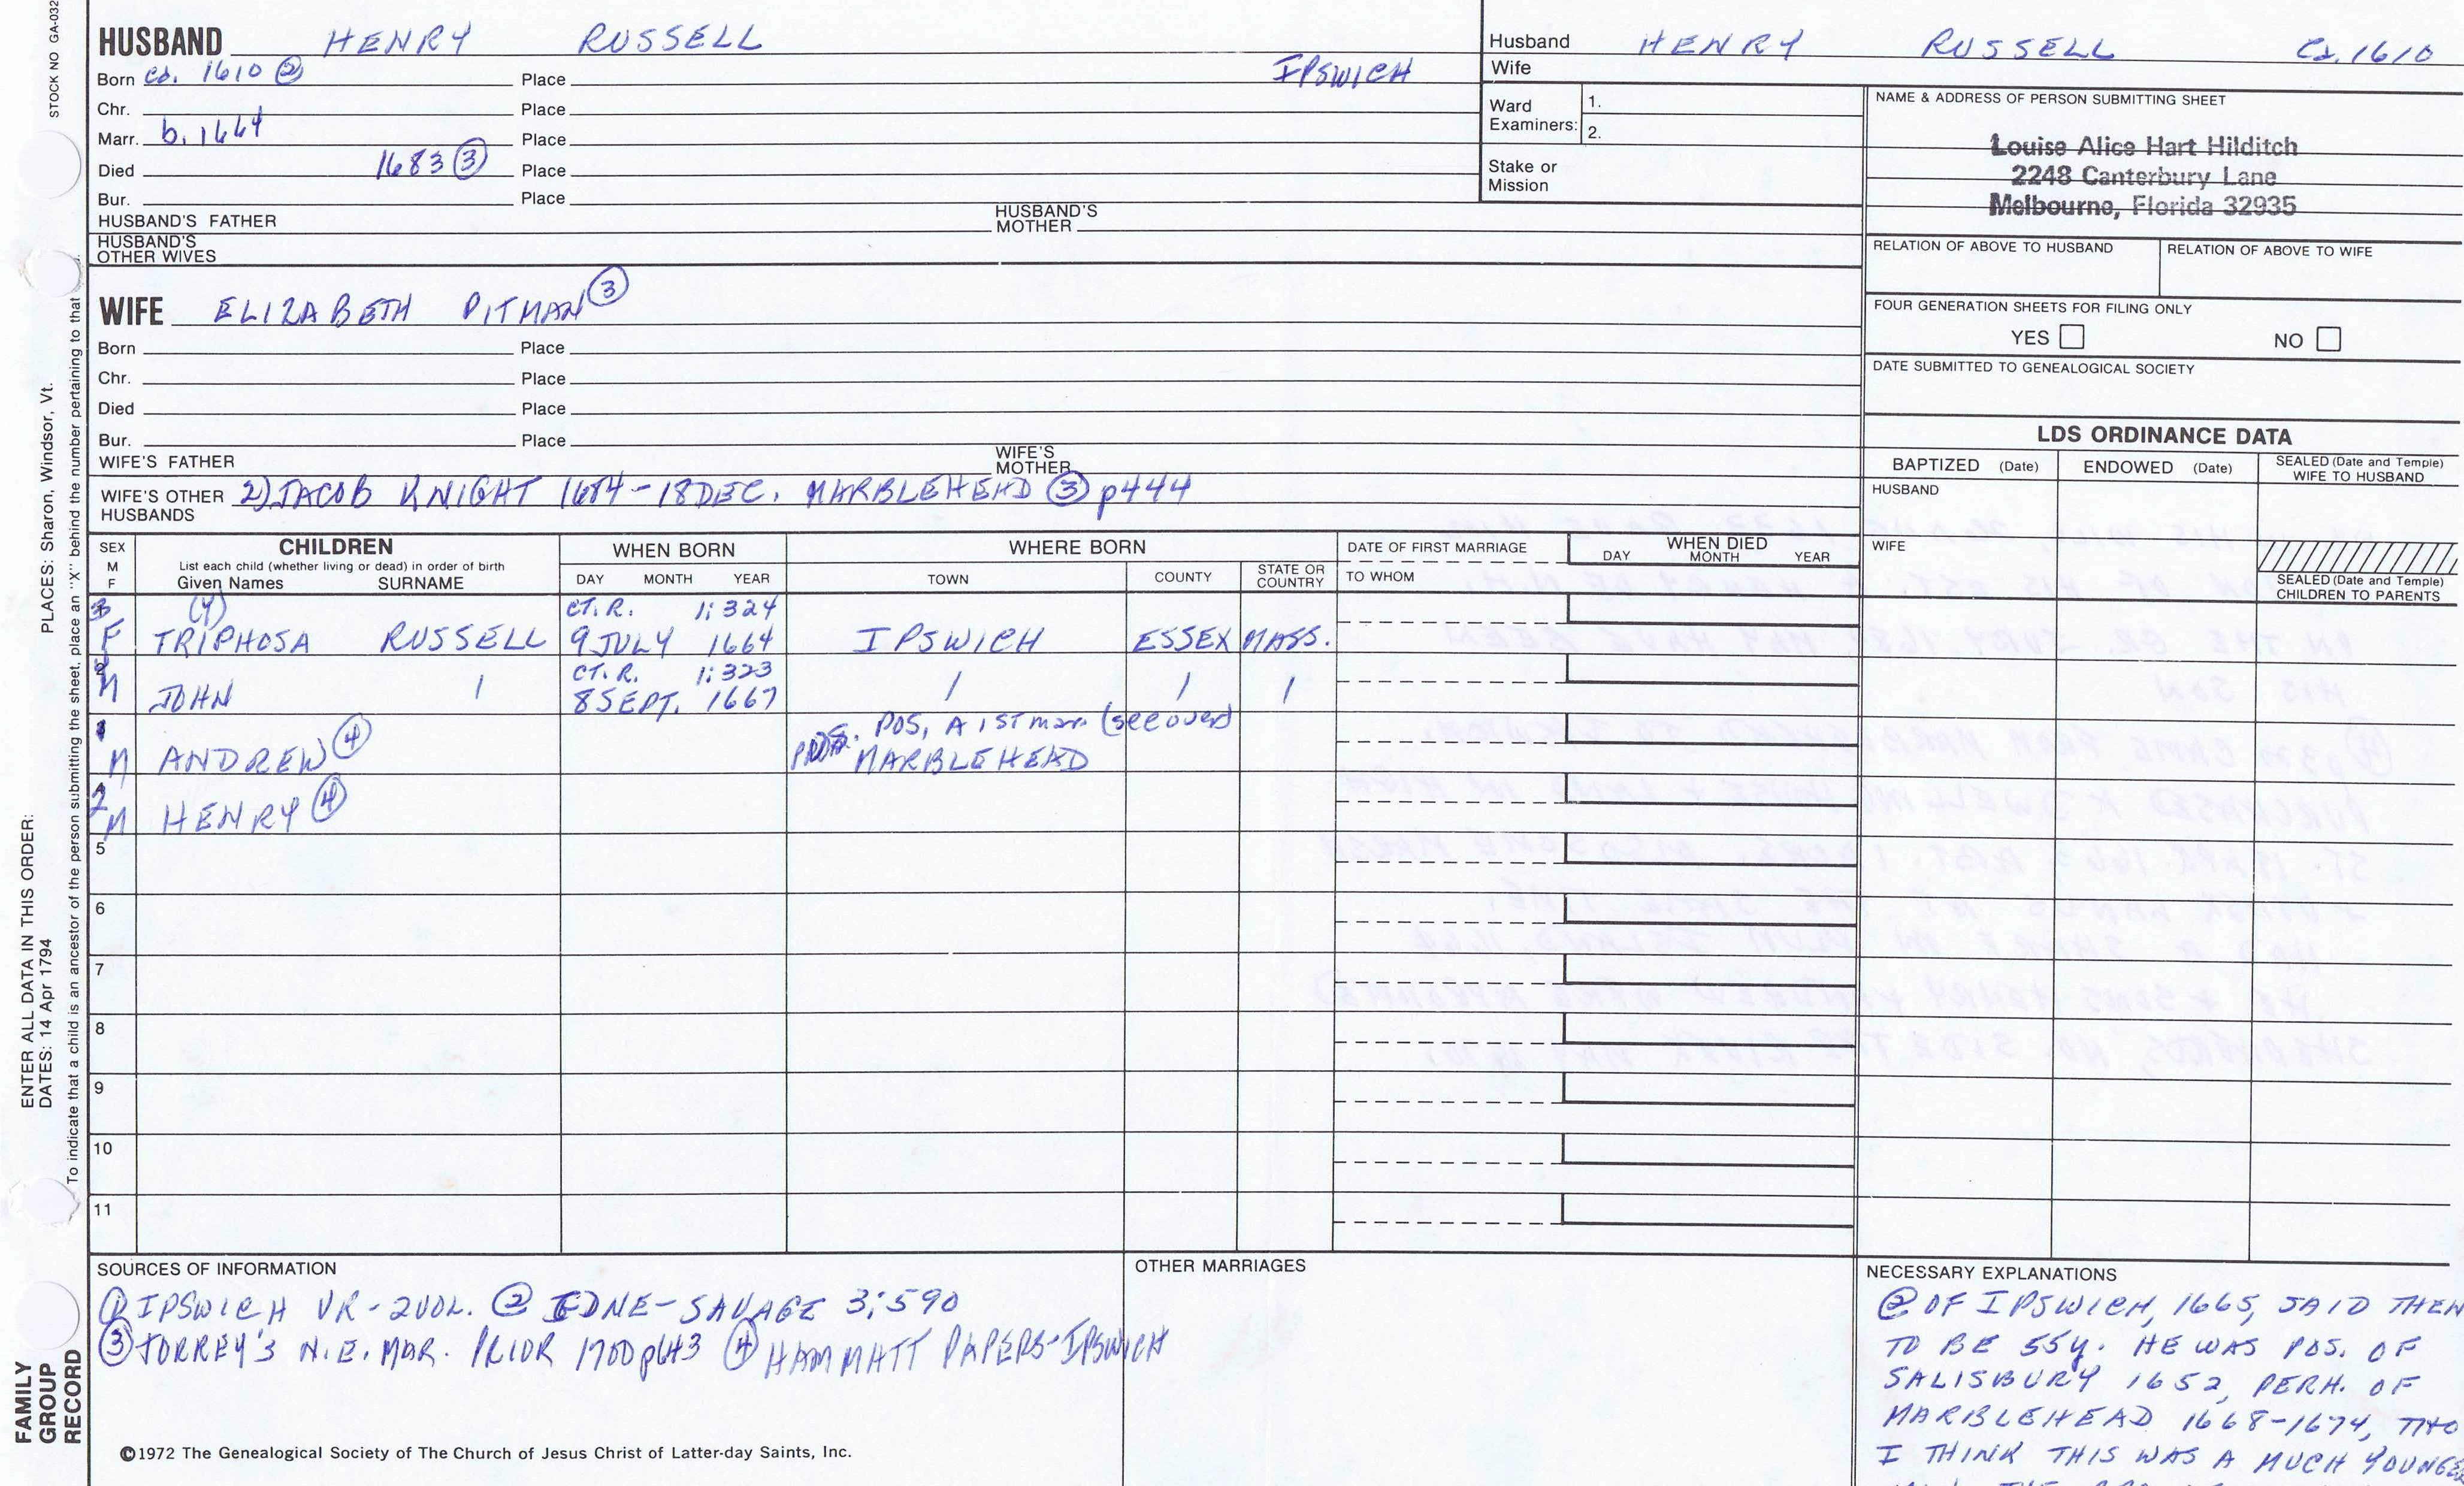 STOCK NO GA-032
HUSBAND HENRY RUSSELL
Born ca. 1610 ② Place IPSWICH
Chr. Place
Marr. b. 1664 Place
Died 1683 ③ Place
Bur. Place
HUSBAND'S FATHER HUSBAND'S MOTHER
HUSBAND'S OTHER WIVES
Husband HENRY RUSSELL Ca. 1610
Wife
Ward Examiners: 1.
2.
Stake or Mission
NAME & ADDRESS OF PERSON SUBMITTING SHEET
Louise Alice Hart Hilditch
2248 Canterbury Lane
Melbourne, Florida 32935
RELATION OF ABOVE TO HUSBAND RELATION OF ABOVE TO WIFE
FOUR GENERATION SHEETS FOR FILING ONLY
YES NO
DATE SUBMITTED TO GENEALOGICAL SOCIETY
WIFE ELIZABETH PITMAN ③
Born Place
Chr. Place
Died Place
Bur. Place
WIFE'S FATHER WIFE'S MOTHER
WIFE'S OTHER HUSBANDS 2) JACOB KNIGHT 1684-18 DEC. MARBLEHEAD ③ p444
LDS ORDINANCE DATA
BAPTIZED (Date) ENDOWED (Date) SEALED (Date and Temple) WIFE TO HUSBAND
HUSBAND
WIFE
SEALED (Date and Temple) CHILDREN TO PARENTS
SEX M F
CHILDREN
List each child (whether living or dead) in order of birth
Given Names SURNAME
WHEN BORN
DAY MONTH YEAR
WHERE BORN
TOWN COUNTY STATE OR COUNTRY
DATE OF FIRST MARRIAGE
TO WHOM
WHEN DIED
DAY MONTH YEAR
3 (Y) CT. R. 1:324
F TRIPHOSA RUSSELL 9 JULY 1664 IPSWICH ESSEX MASS.
4 CT. R. 1:323
M JOHN / 8 SEPT. 1667 / / /
1 POS. A 1ST mar. (see over)
M ANDREW ④ MARBLEHEAD
2
M HENRY ④
5
6
7
8
9
10
11
SOURCES OF INFORMATION
① IPSWICH VR-2VOL. ② GDNE-SAVAGE 3:590
③ TORREY'S N.E. MAR. PRIOR 1700 p643 ④ HAMMATT PAPERS-IPSWICH
OTHER MARRIAGES
NECESSARY EXPLANATIONS
② OF IPSWICH, 1665, SAID THEN
TO BE 55y. HE WAS POS. OF
SALISBURY 1652, PERH. OF
MARBLEHEAD 1668-1674, THO
I THINK THIS WAS A MUCH YOUNGER
©1972 The Genealogical Society of The Church of Jesus Christ of Latter-day Saints, Inc.
PLACES: Sharon, Windsor, Vt.
ENTER ALL DATA IN THIS ORDER:
DATES: 14 Apr 1794
To indicate that a child is an ancestor of the person submitting the sheet, place an "X" behind the number pertaining to that
FAMILY
GROUP
RECORD